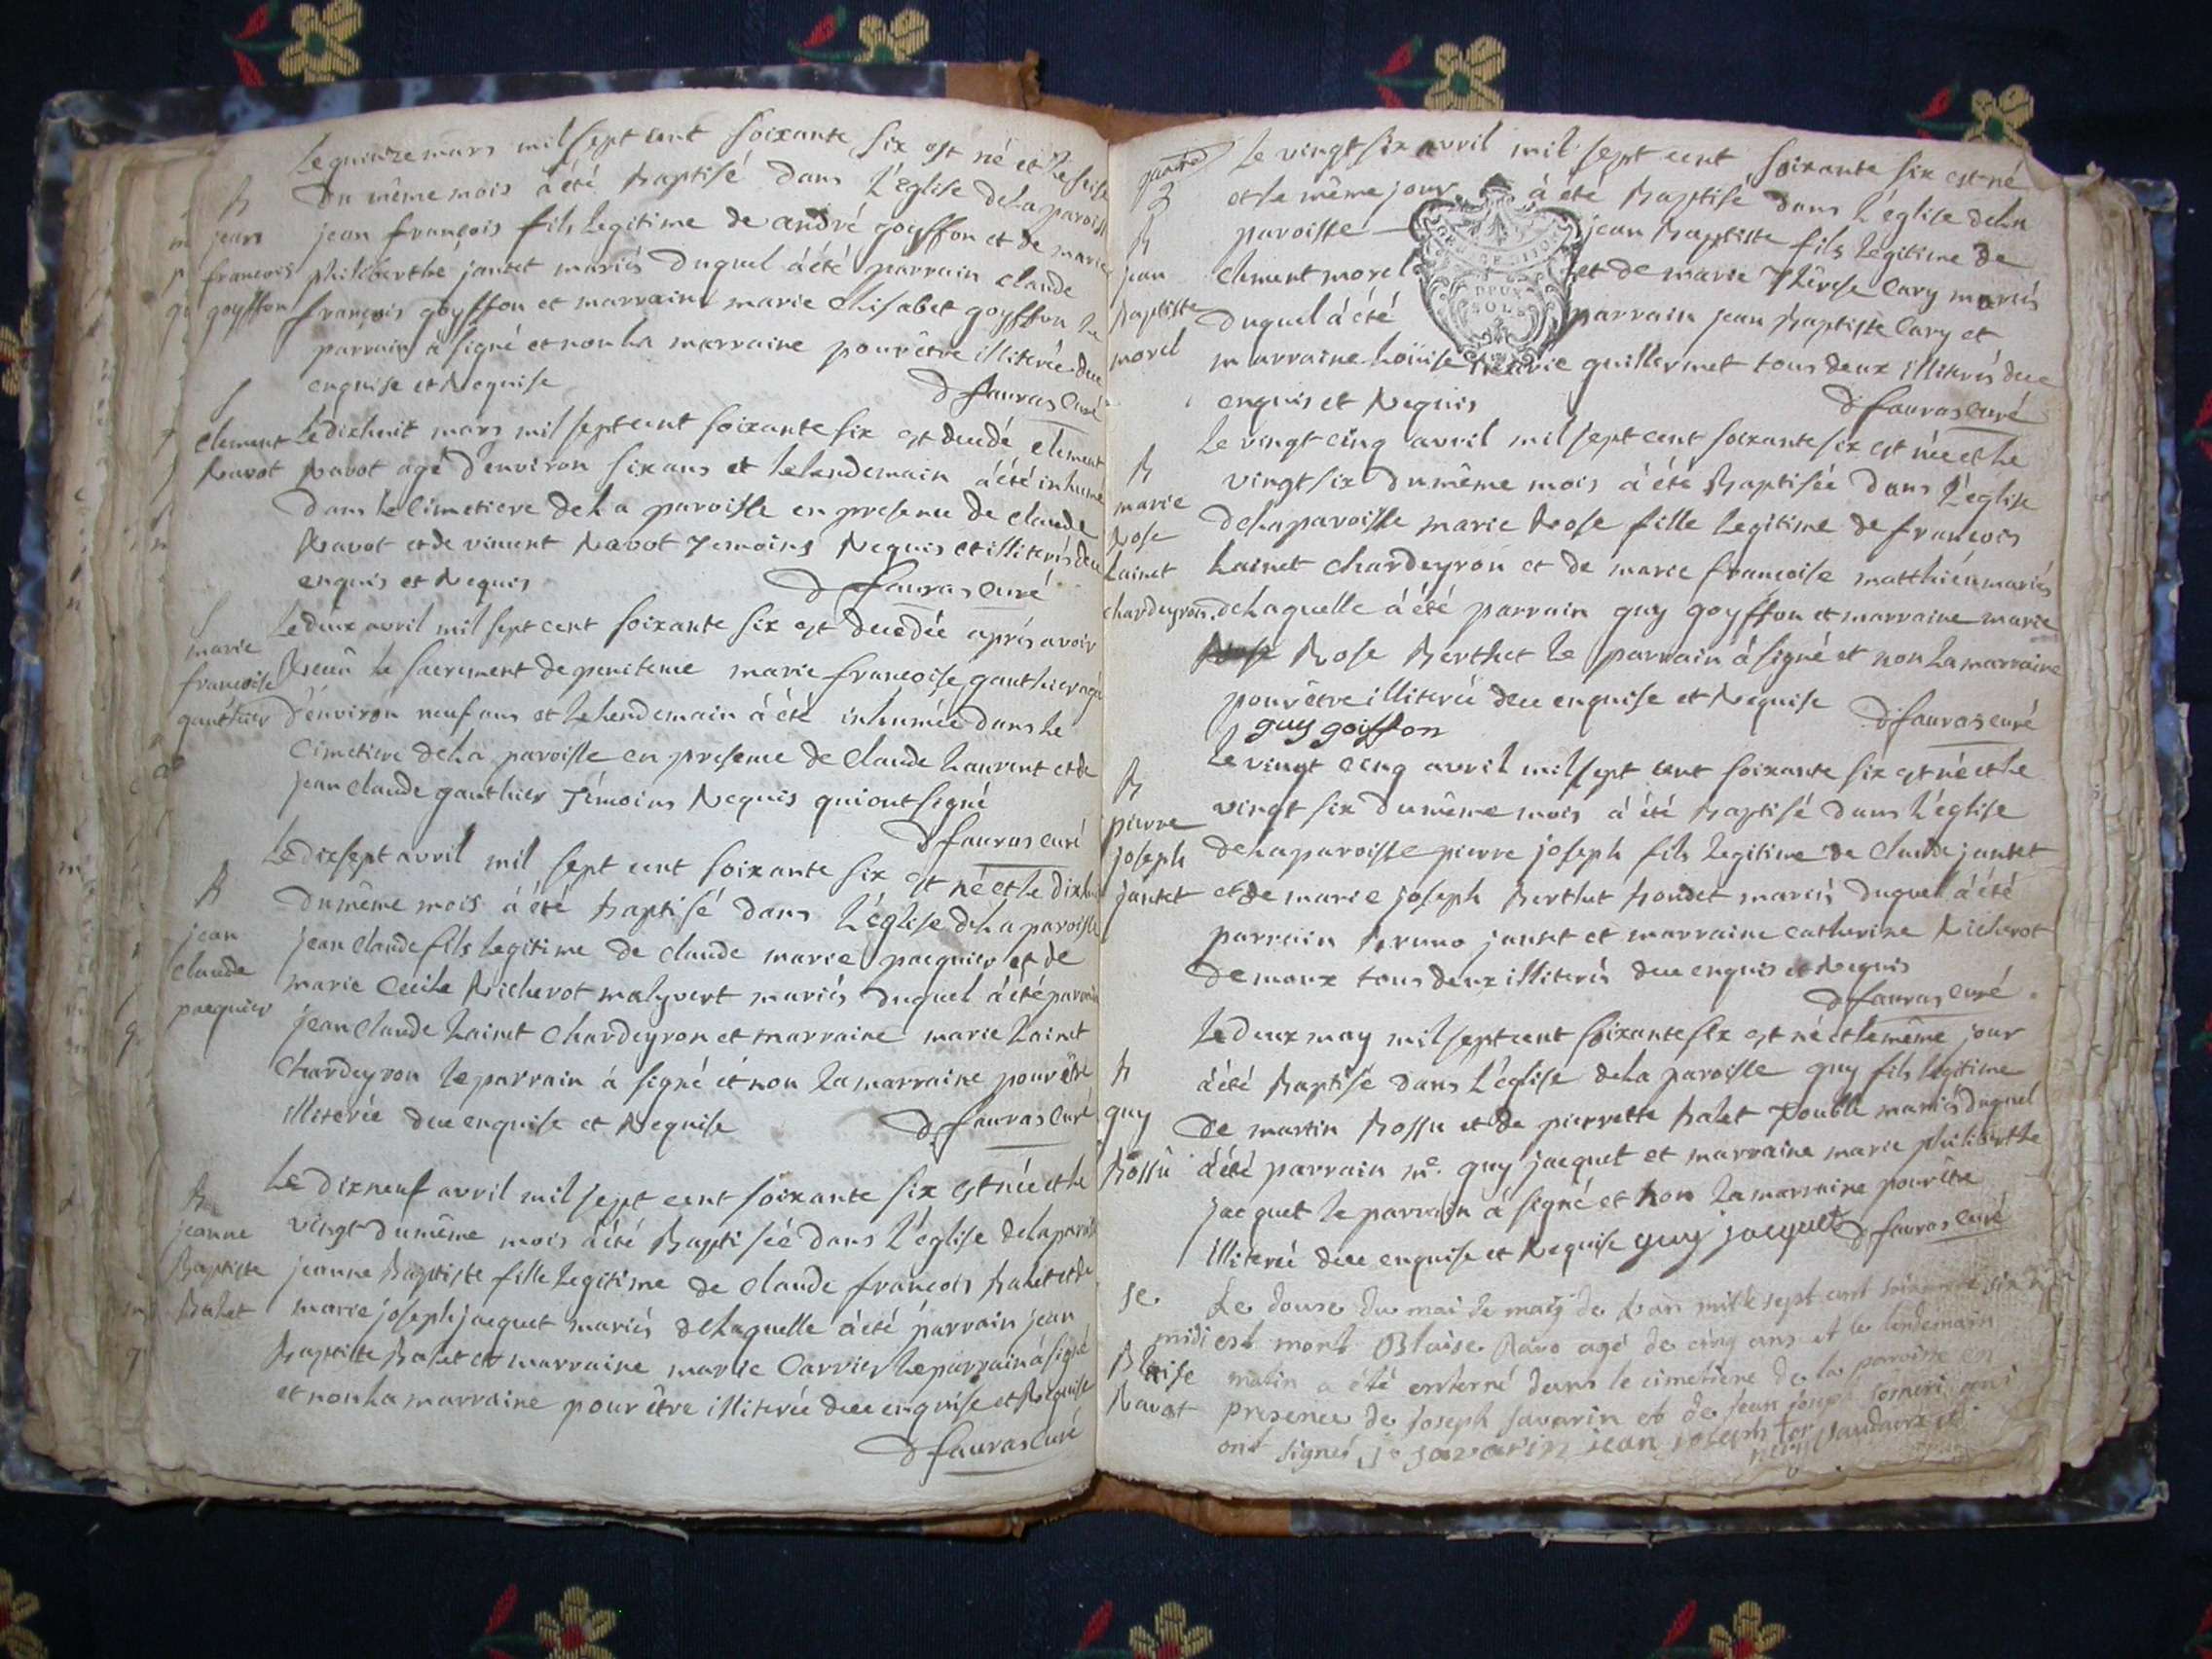 Le quinze mars mil sept cent soixante six est né et le seise
Du même mois à été Baptisé Dans L'Eglise deLa paroisse
B
jean
jean françois fils Legitime de andré goyffon et de marie
francois
philiberthe jantet mariés Duquel à été parrain claude
goyffon
françois goyffon et marraine marie Elisabet goyffon Le
parrain à signé et non La marraine pour être illiterée due
enquise et Requise
D fauras Curé
S
clement
Ravot
Le dixhuit mars mil sept cent soixante six est decedé clement
Ravot agé d'environ six ans et le Lendemain à été inhumé
Dans Le Cimetiere deLa paroisse en presence de claude
Ravot et de vincent Ravot Temoins Requis et illiterés due
enquis et Requis
D fauras Curé
S
marie
francoise
gauthier
Le deux avril mil sept cent soixante six est decedée aprés avoir
Receû le sacrement de penitence marie francoise gauthier agé
d'environ neuf ans et Le Lendemain à été inhumée dans Le
Cimetiere deLa paroisse en presence de claude Laurent et de
jean claude gauthier Témoins Requis qui ont signé
D fauras curé
B
jean
claude
pacquier
Le dixsept avril mil sept cent soixante six est né et le dixhuit
Du même mois à été Baptisé dans L'Eglise deLa paroisse
jean claude fils Legitime de claude marie pacquier et de
marie Cecile Richerot malyvert mariés Duquel à été parrain
jean claude Lainet Chardeyron et marraine marie Lainet
Chardeyron Le parrain à signé et non La marraine pour être
illiterée due enquise et Requise
D fauras Curé
B
jeanne
Baptiste
Balet
Le dixneuf avril mil sept cent soixante six est née et le
vingt du même mois à été Baptisée Dans L'église deLa paroisse
jeanne Baptiste fille Legitime de claude francois Balet et de
marie joseph jacquet mariés deLaquelle à été parrain jean
Baptiste Balet et marraine marie Carrier Le parrain à signé
et non La marraine pour être illiterée due enquise et Requise
D fauras Curé
Le vingt six avril mil sept cent soixante six est né
et le même jour à été Baptisé dans L'église deLa
B
jean
Baptiste
morel
paroisse jean Baptiste fils Legitime de
clement morel et de marie Thérese Cary mariés
DEUX
SOLS
Duquel à été parrain jean Baptiste Cary et
marraine Loüise marie guillermet tous deux illiterés due
enquis et Requis
D fauras curé
B
marie
Rose
Lainet
chardeyron
Le vingt cinq avril mil sept cent soixante six est née et Le
vingt six du même mois à été Baptisée dans L'église
deLa paroisse marie Rose fille Legitime de francois
Lainet chardeyron et de marie francoise matthieu mariés
deLaquelle à été parrain guy goyffon et marraine marie
Rose Berthet Le parrain à signé et non La marraine
pour être illiterée due enquise et Requise
D fauras curé
guy goiffon
B
pierre
joseph
jantet
Le vingt cinq avril mil sept cent soixante six est né et Le
vingt six du même mois à été Baptisé dans L'église
deLa paroisse pierre joseph fils Legitime de claude jantet
et de marie joseph Berthet Bondet mariés Duquel à été
parrain Bruno jantet et marraine catherine Richerot
Demoux tous deux illiterés due enquis et Requis
D fauras Curé
B
guy
Bossu
Le deux may mil sept cent soixante six est né et le même jour
à été Baptisé dans L'église deLa paroisse guy fils Legitime
De martin Bossu et de pierrette Balet Double mariés Duquel
à été parrain me. guy jacquet et marraine marie philiberthe
jacquet Le parrain à signé et non La marraine pour être
illiterée due enquise et Requise guy jacquet D fauras Curé
Se.
Blaise
Ravot
Le douse du mai de l'an mille sept cent soixante six
midi est mort Blaise Ravo agé de cinq ans et le lendemain
matin a été enterné dans le cimetiere de la paroisse en
presence de Joseph savarin et de jean joseph qui
ont signés jo savarin jean joseph